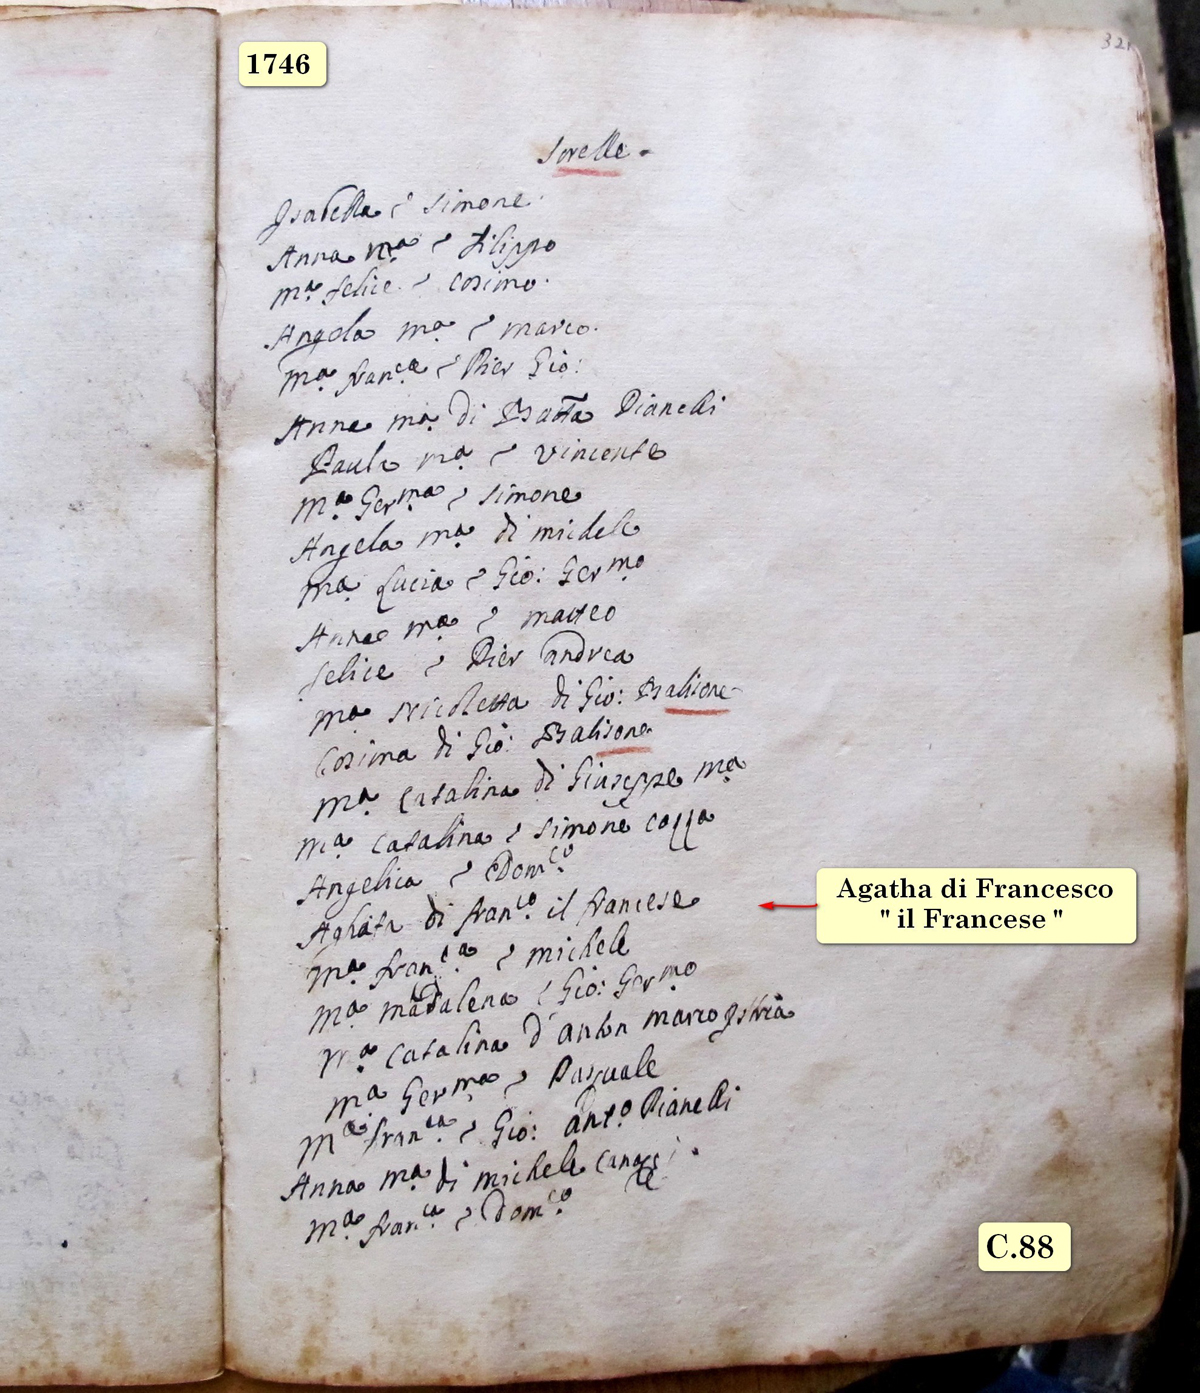 1746
321
Sorelle.
Isabella e Simone.
Anna ma e Filippo
ma felice e Cosimo.
Angela ma e marco.
ma franca e Pier Gio:
Anna ma di Batta Pianelli
Paula ma e Vincente
ma Germa e Simone
Angela ma di michele
ma Lucia e Gio: Germo
Anna ma e matteo
felice e Pier andrea
ma Nicoletta di Gio: Balisone
Cosima di Gio: Balisone
ma Catalina di Giuseppe ma
ma Catalina e Simone Cozza
Angelica e Domco
Aghata di franco il francese
ma franca e michele
ma madalena e Gio: Germo
ma Catalina d'anton marco Istria
ma Germa e Pasquale
ma franca e Gio: anto Pianelli
Anna ma di michele
ma franca e Domco
Agatha di Francesco
" il Francese "
C.88